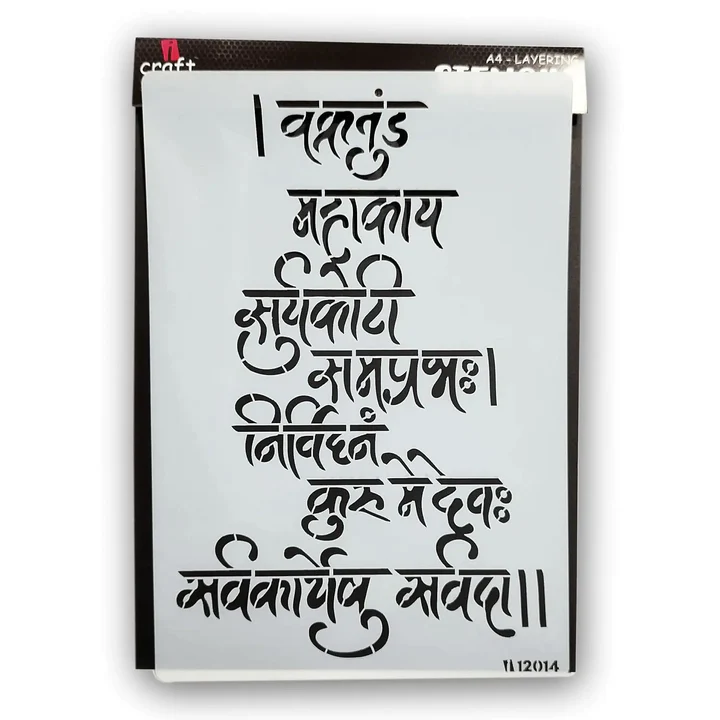 i craft
A4 - LAYERING
। वक्रतुंड
महाकाय
सुर्यकोटी
समप्रभः।
निर्विघ्नं
कुरु मे देवः
सर्वकार्येषु सर्वदा॥
12014